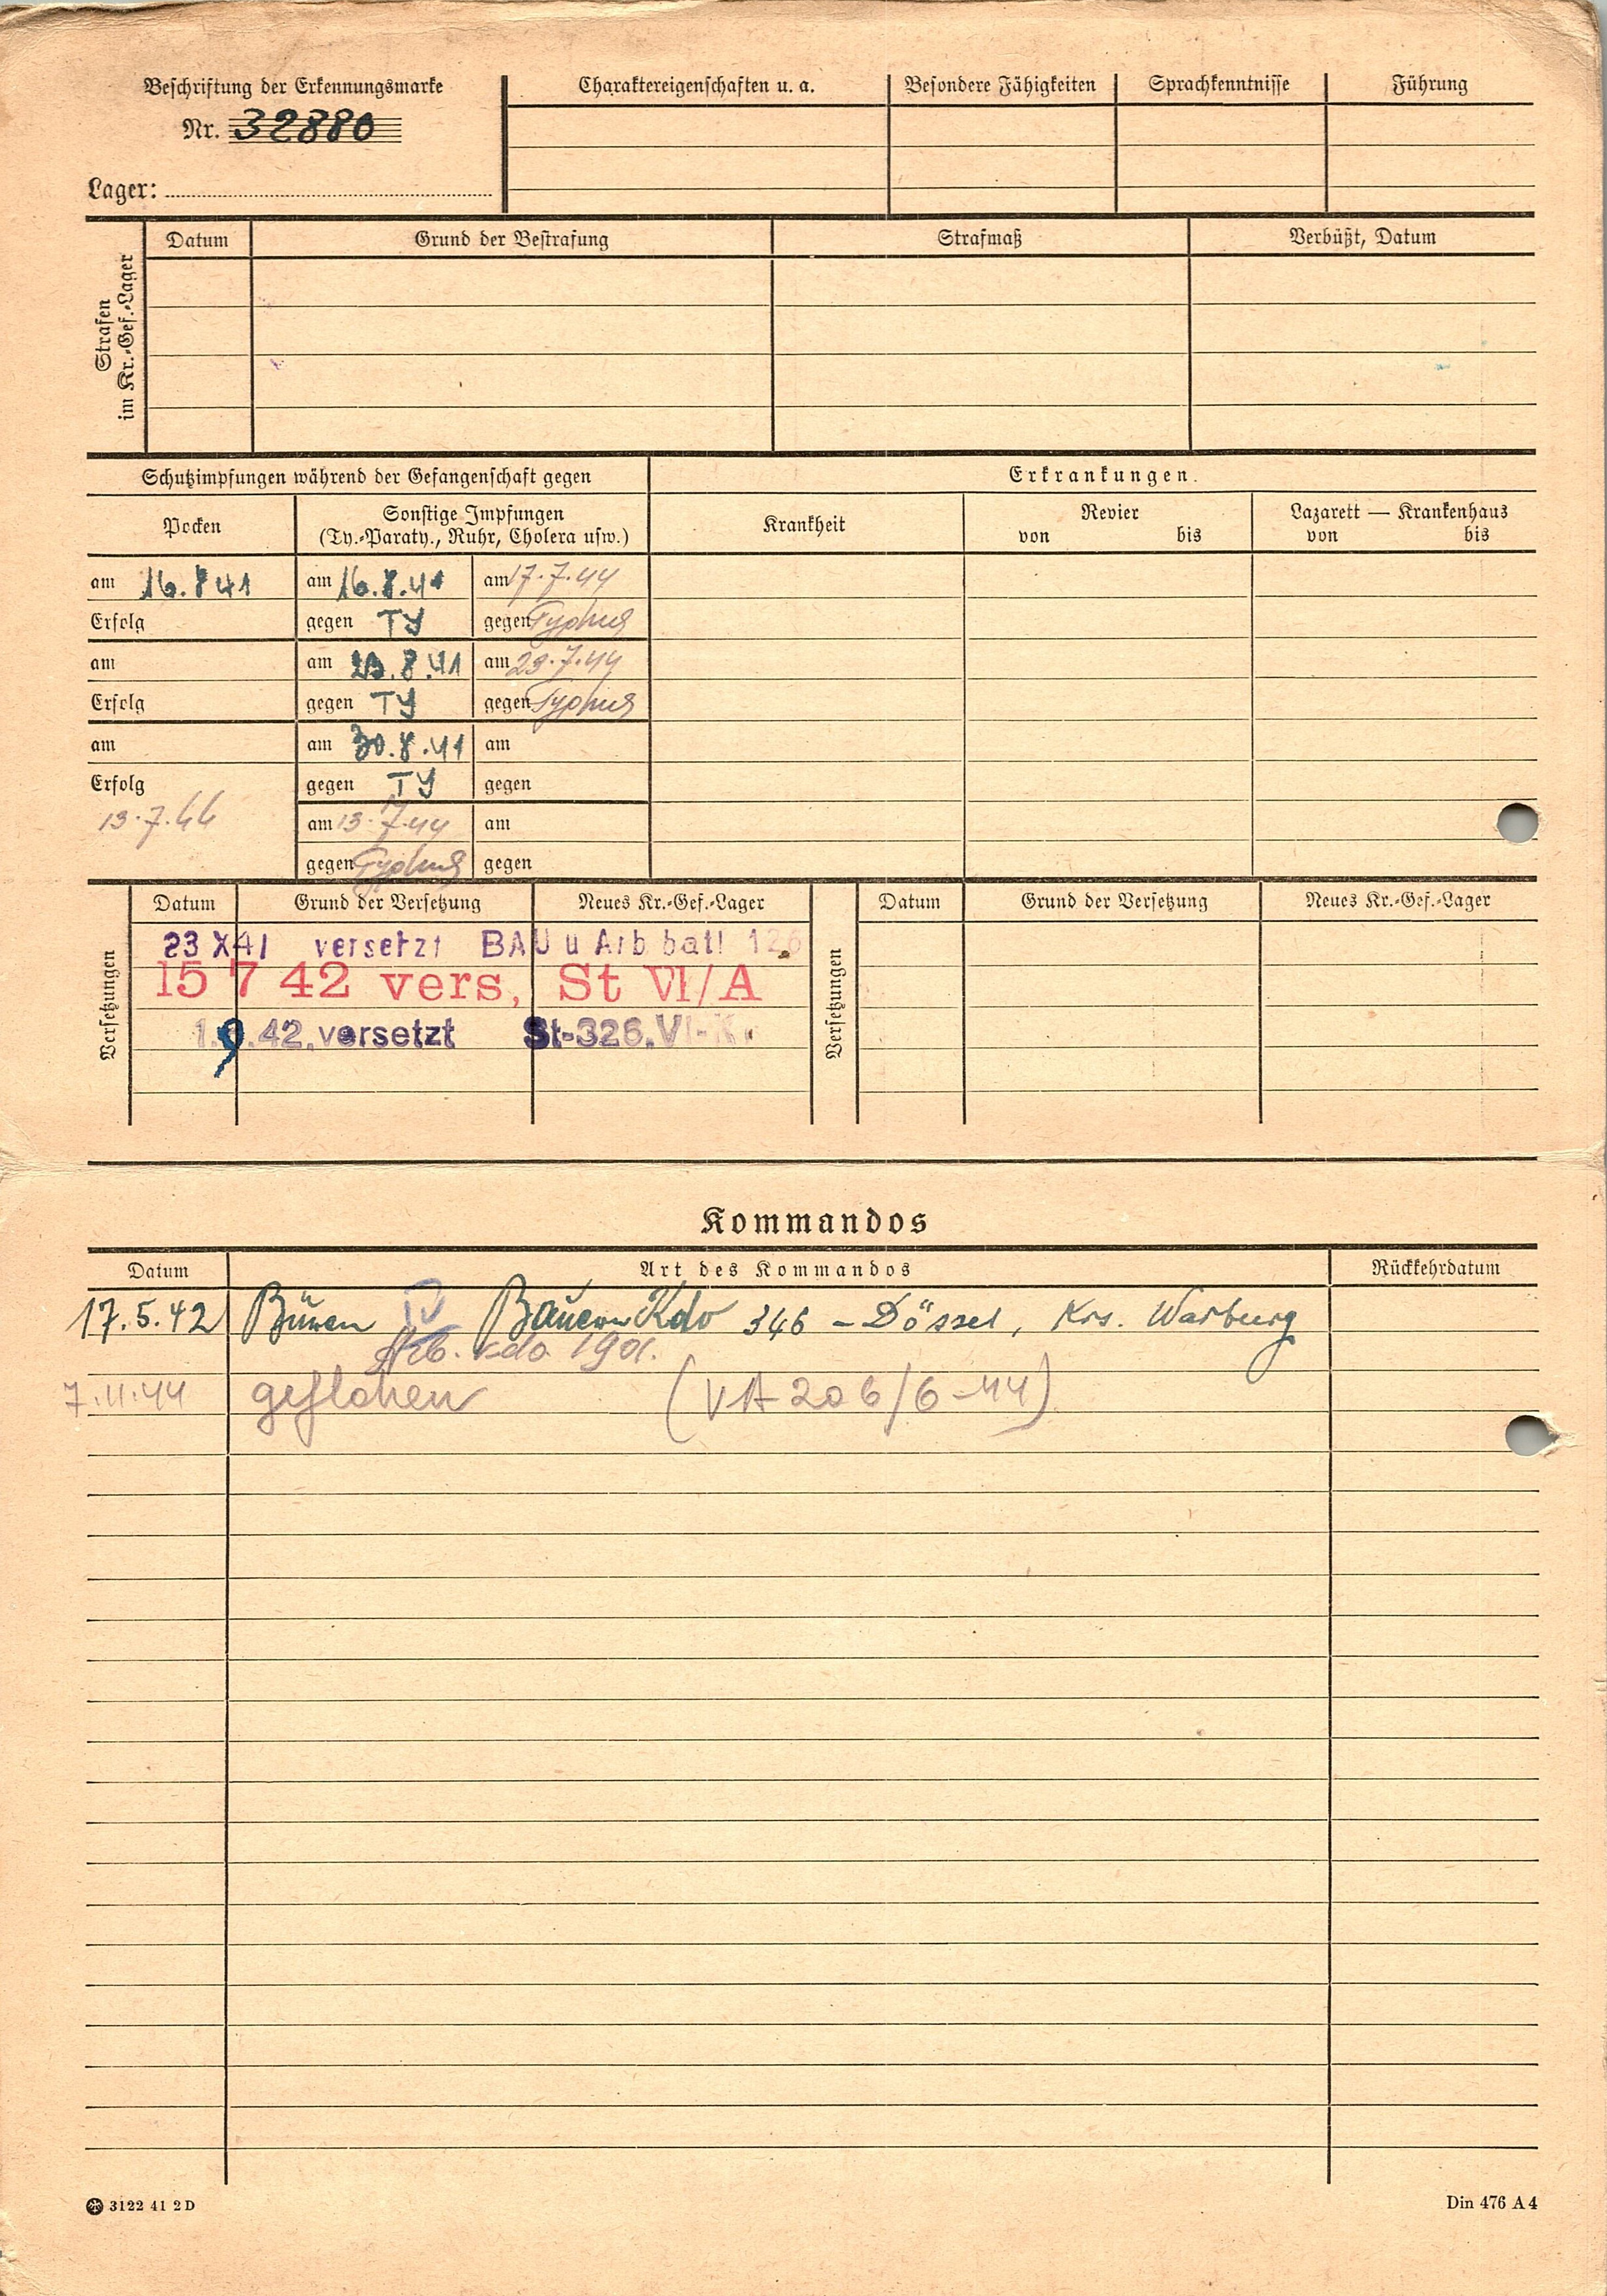 Beschriftung der Erkennungsmarke
Nr. 32880
Lager:
Charaktereigenschaften u. a.
Besondere Fähigkeiten
Sprachkenntnisse
Führung
Strafen
im Kr.-Gef.-Lager
Datum
Grund der Bestrafung
Strafmaß
Verbüßt, Datum
Schutzimpfungen während der Gefangenschaft gegen
Erkrankungen.
Pocken
Sonstige Impfungen
(Ty.-Paraty., Ruhr, Cholera usw.)
Krankheit
Revier
von bis
Lazarett — Krankenhaus
von bis
am 16.8 41 am 16.8.41 am 17.7.44
Erfolg gegen TY gegen Typhus
am am 23.8.41 am 29.7.44
Erfolg gegen TY gegen Typhus
am am 30.8.41 am
Erfolg gegen TY gegen
13.7.44 am 13.7.44 am
gegen Typhus gegen
Versetzungen
Datum Grund der Versetzung Neues Kr.-Gef.-Lager
23 X 41 versetzt BAU u Arb batl 126
15 7 42 vers, St VI/A
1.9.42.versetzt St-326.VI-K
Versetzungen
Datum Grund der Versetzung Neues Kr.-Gef.-Lager
Kommandos
Datum Art des Kommandos Rückkehrdatum
17.5.42 Büren Bauern Kdo 346 - Dössel, Krs. Warburg
Arb. kdo 1901.
7.11.44 geflohen (VA 206/6-44)
3122 41 2 D
Din 476 A 4